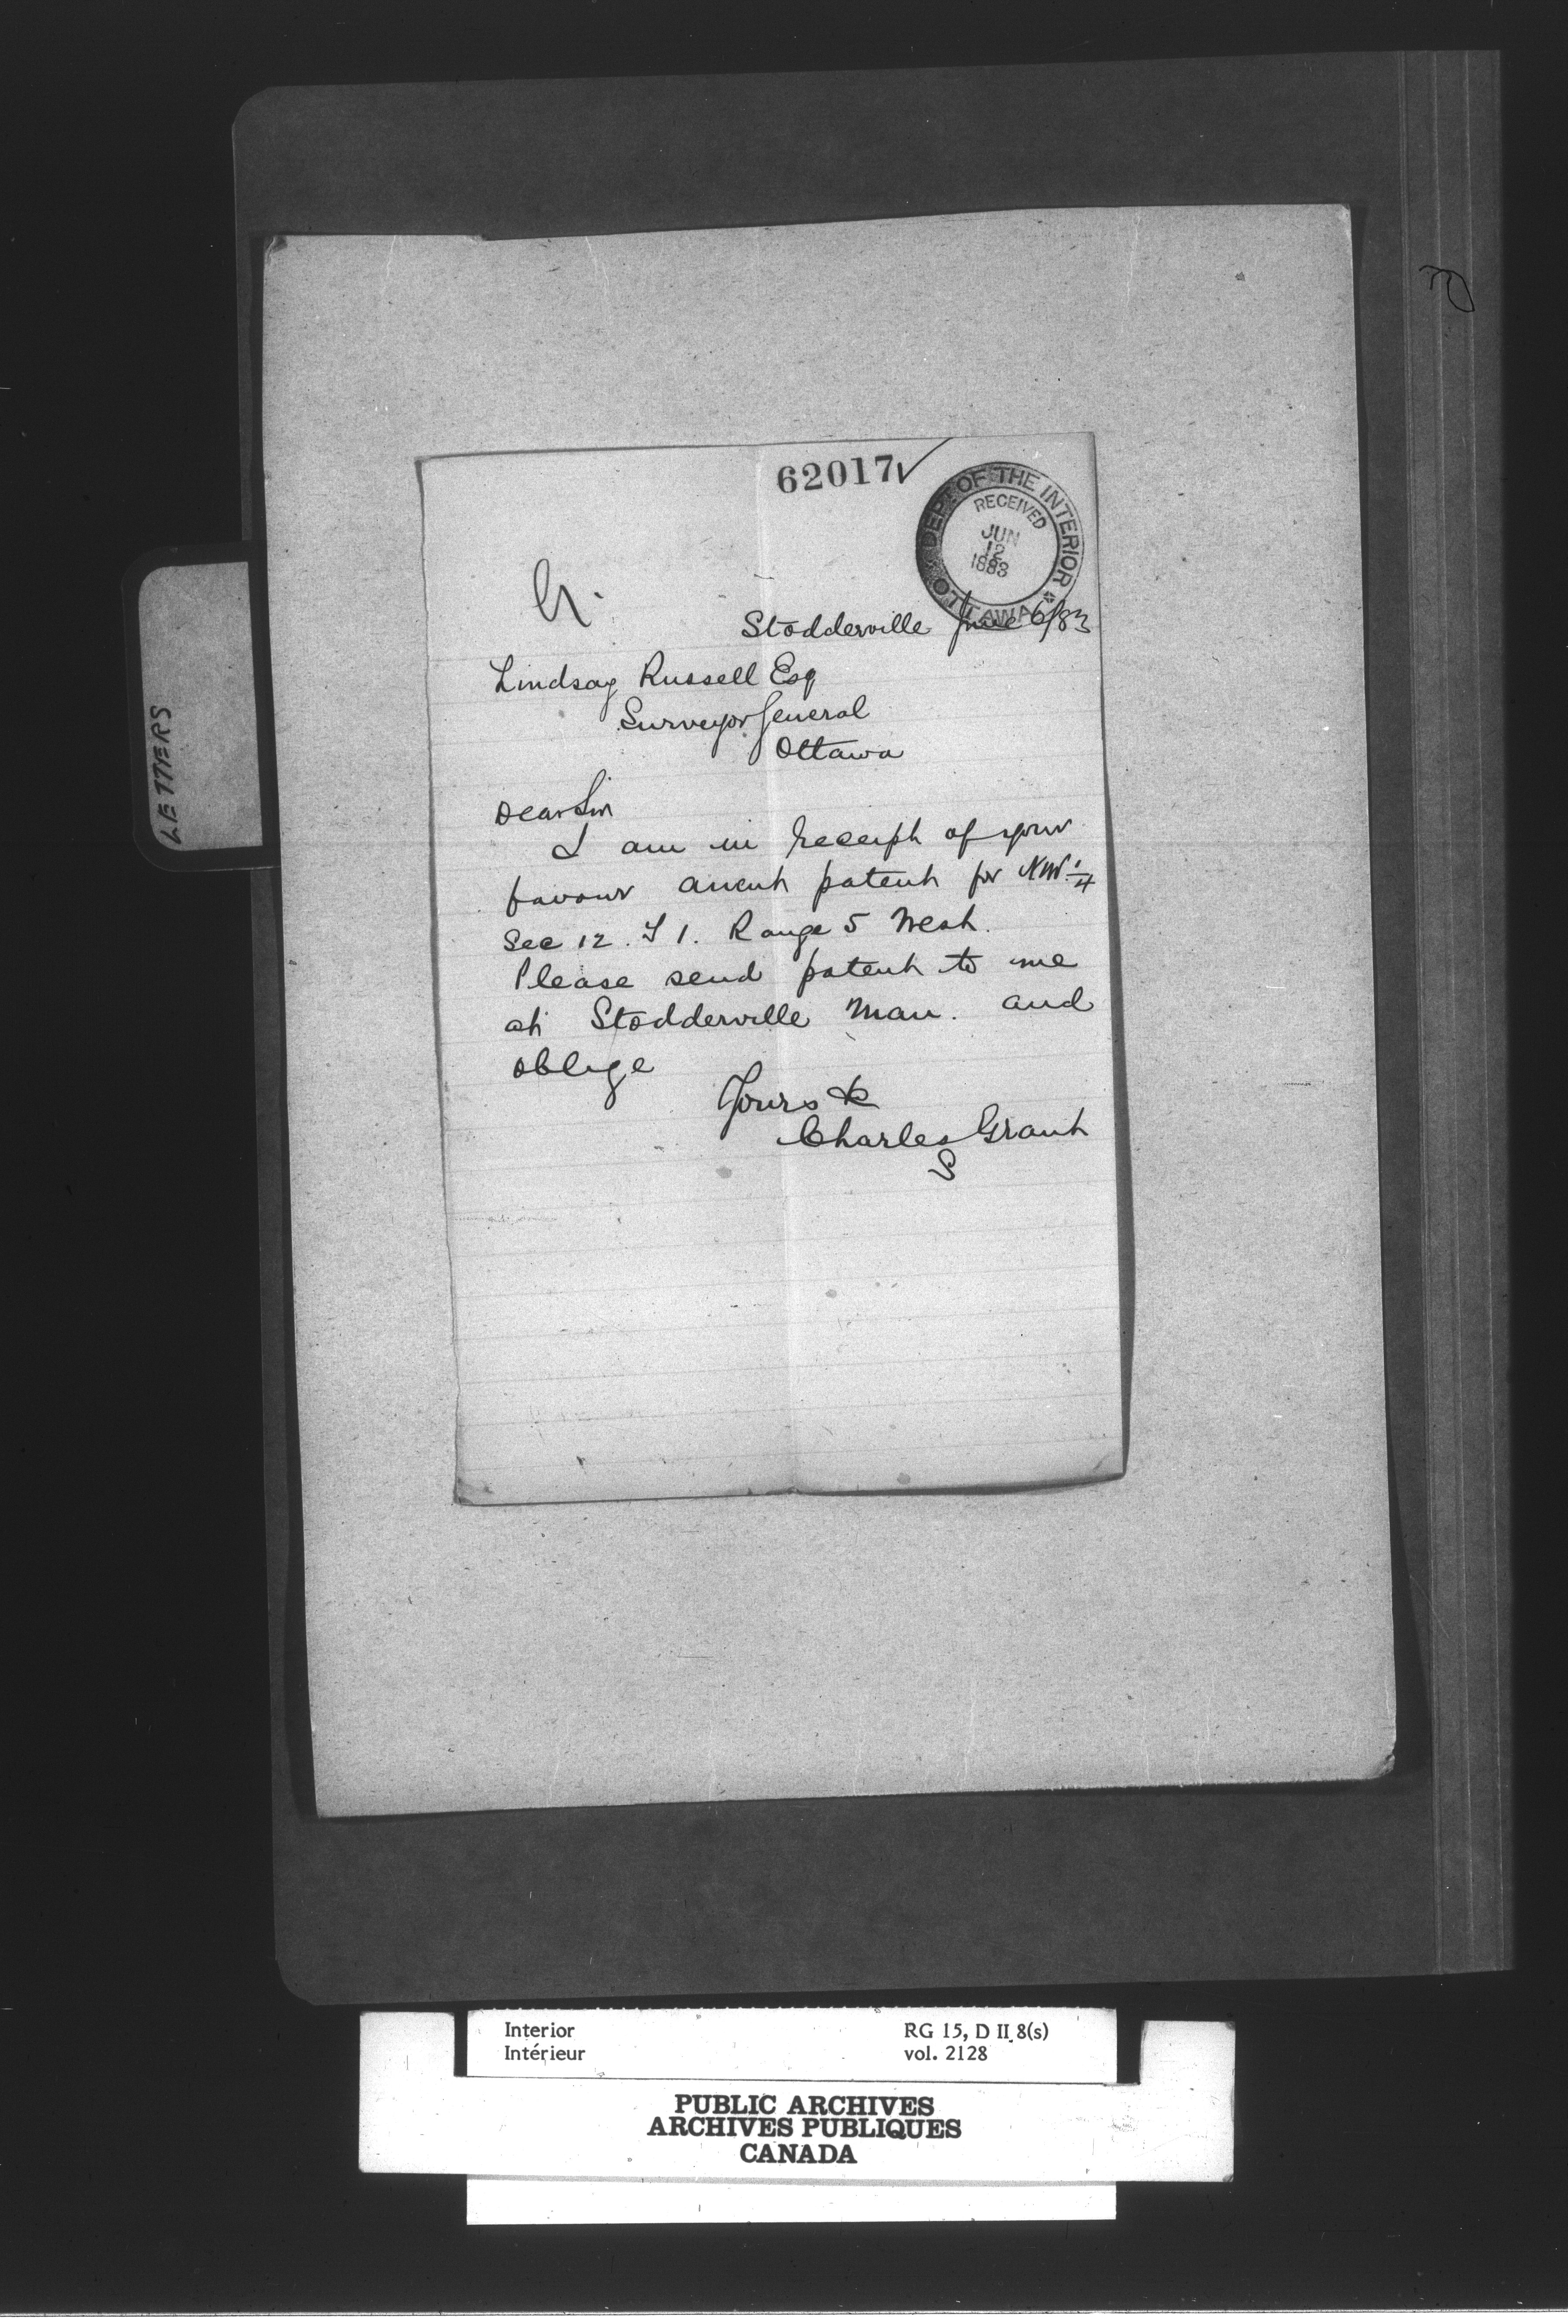 LETTERS
62017
DEPT OF THE INTERIOR
RECEIVED
JUN
12
1883
OTTAWA
Stodderville June 6/83
Lindsay Russell Esq
Surveyor General
Ottawa
Dear Sir
I am in receipt of your
favour anent patent for NW 1/4
Sec 12. T 1. Range 5 West.
Please send patent to me
at Stodderville Man. and
oblige
Yours &c
Charles Grant
S
Interior
Intérieur
RG 15, D II 8(s)
vol. 2128
PUBLIC ARCHIVES
ARCHIVES PUBLIQUES
CANADA